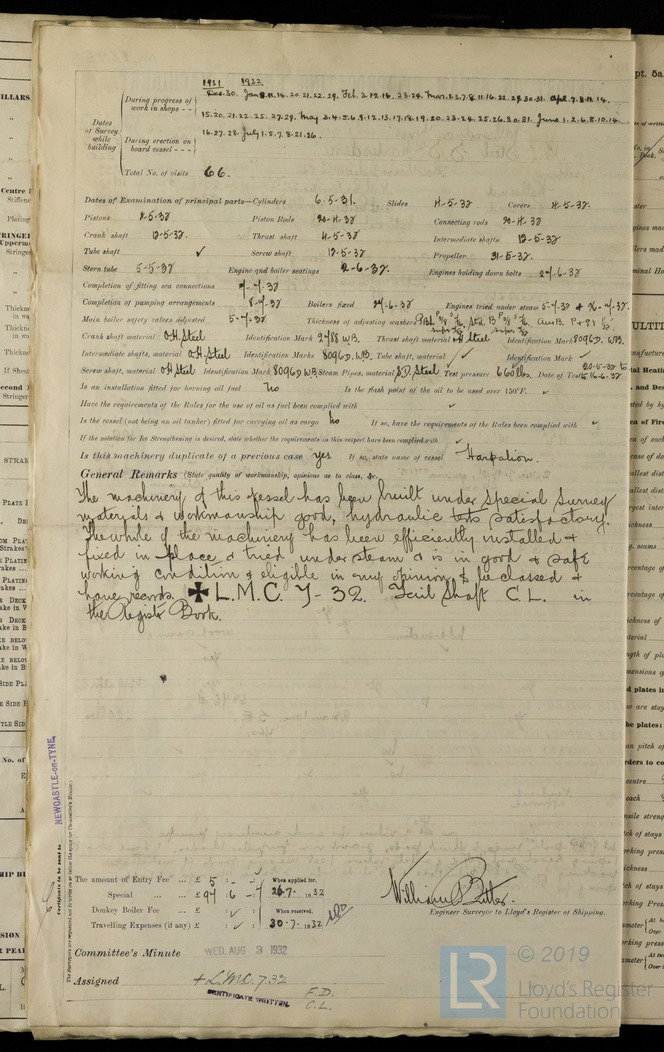 1931 1932
During progress of work in shops - - Dec. 30. Jan 8.11.14. 20. 21. 22. 29. Feb. 2. 12. 16. 23. 24. Mar. 1. 2. 7. 8. 11. 16. 22. 29. 30. 31. Apl. 7. 8. 11. 14.
15. 20. 21. 22. 25. 27. 29. May 3. 4. 5. 6. 9. 12. 13. 17. 18. 19. 20. 23. 24. 25. 26. 30. 31. June 1. 2. 6. 8. 10. 14.
Dates of Survey while building
During erection on board vessel - - - 16. 27. 28. July 1. 5. 7. 8. 21. 26.
Total No. of visits 66.
Dates of Examination of principal parts—Cylinders 6.5.31. Slides 4.5.32. Covers 4.5.32.
Pistons 4.5.32 Piston Rods 20.4.32 Connecting rods 20.4.32
Crank shaft 12.5.32. Thrust shaft 4.5.32 Intermediate shafts 12.5.32
Tube shaft ✓ Screw shaft 12.5.32 Propeller 31.5.32.
Stern tube 5.5.32 Engine and boiler seatings 2.6.32. Engines holding down bolts 27.6.32
Completion of fitting sea connections
Completion of pumping arrangements 8.7.32 Boilers fixed 27.6.32 Engines tried under steam 5.7.32 &
Main boiler safety valves adjusted 5.7.32 Thickness of adjusting washers
Crank shaft material O.H. Steel Identification Mark 2788 W.B. Thrust shaft material O.H. Steel Identification Mark 8096.D. W.B.
Intermediate shafts, material O.H. Steel Identification Marks 8096.D. W.B. Tube shaft, material ✓ Identification Mark ✓
Screw shaft, material O.H. Steel Identification Mark 8096 D.W.B Steam Pipes, material S.D. Steel Test pressure 660 lbs. Date of Test 20.5.32 to 16.6.32
Is an installation fitted for burning oil fuel no Is the flash point of the oil to be used over 150°F. ✓
Have the requirements of the Rules for the use of oil as fuel been complied with ✓
Is the vessel (not being an oil tanker) fitted for carrying oil as cargo no If so, have the requirements of the Rules been complied with ✓
If the notation for Ice Strengthening is desired, state whether the requirements in this respect have been complied with ✓
Is this machinery duplicate of a previous case yes If so, state name of vessel Harpalion.
General Remarks (State quality of workmanship, opinions as to class, &c.
The machinery of this vessel has been built under Special Survey
materials & workmanship good, hydraulic tests satisfactory.
The whole of the machinery has been efficiently installed &
fixed in place & tried under steam & is in good & safe
working condition & eligible in my opinion to be classed &
have records. ✠ L.M.C. 7-32. Tail Shaft C.L. in
the Register Book.
NEWCASTLE-on-TYNE
Certificate to be sent to
The amount of Entry Fee ... £ 5 : - : When applied for,
Special ... £ 94 : 6 : 26.7.1932
Donkey Boiler Fee ... £ : ✓ : When received,
Travelling Expenses (if any) £ : ✓ : 30.7.1932
William Butter.
Engineer Surveyor to Lloyd's Register of Shipping.
Committee's Minute WED. AUG 3 1932
Assigned + L.M.C. 7.32
CERTIFICATE WRITTEN.
F.D.
C.L.
© 2019
LR
Lloyd's Register
Foundation